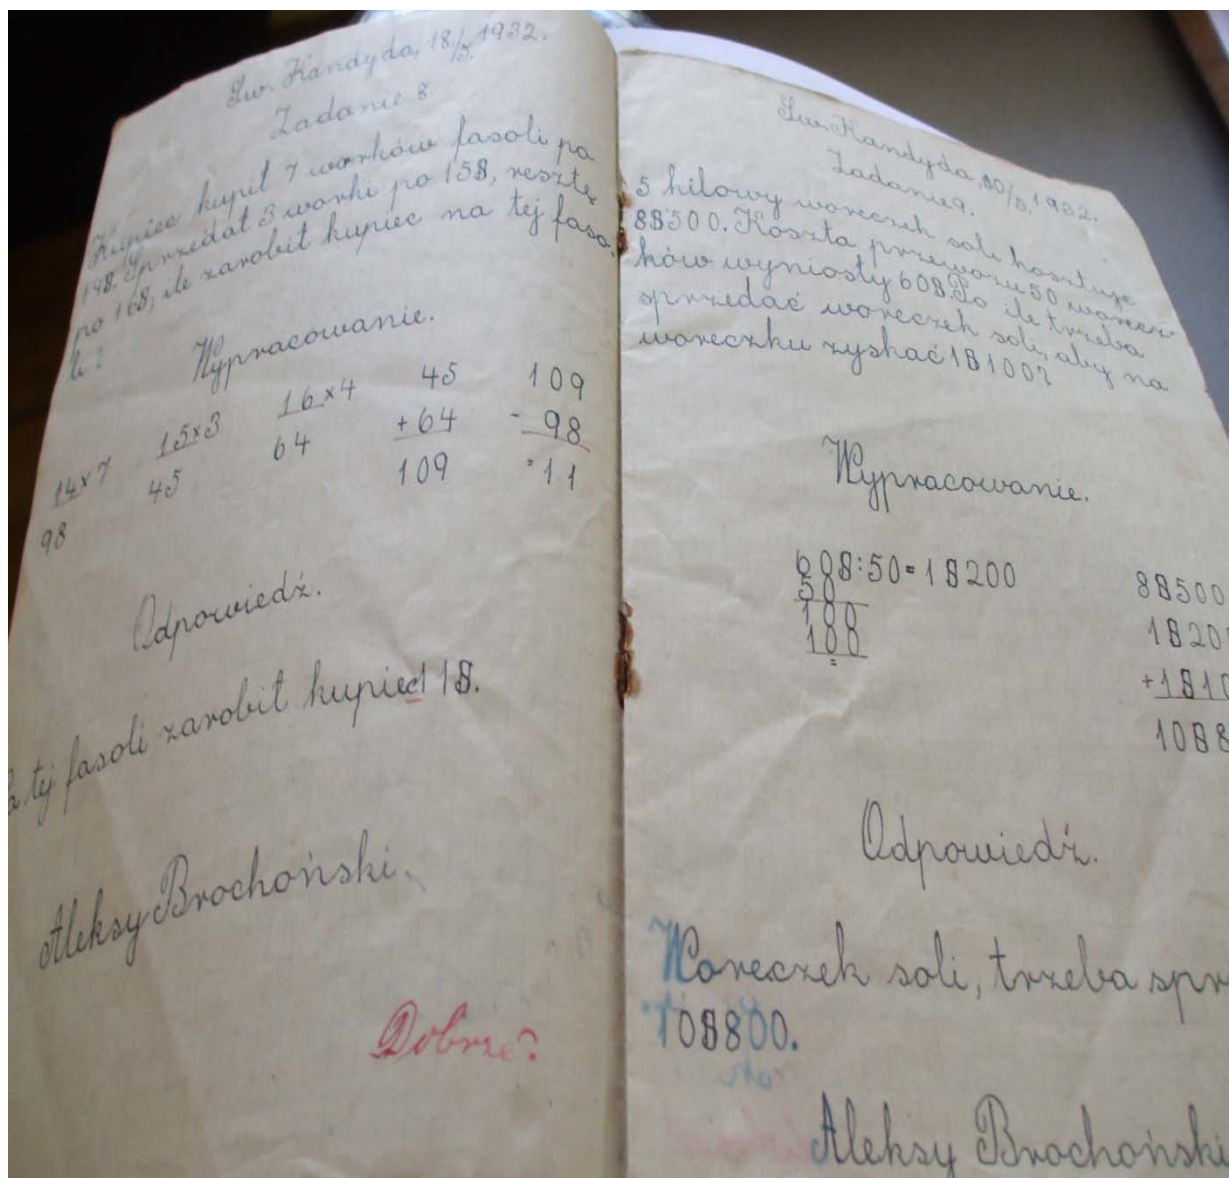 Św. Kandyda, 18/5. 1932.
Zadanie 8.
Kupiec kupił 7 worków fasoli po
14$. Sprzedał 3 worki po 15$, resztę
po 16$, ile zarobił kupiec na tej faso-
li?
Wypracowanie.
14x7 15x3 16x4 45 109
98 45 64 +64 - 98
109 11
Odpowiedź.
a tej fasoli zarobił kupiec 11$.
Aleksy Brochoński.
Dobrze
Św. Kandyda, 20/5. 1932.
Zadanie 9.
5 kilowy woreczek soli kosztuje
8$500. Koszta przewozu 50 worecz-
ków wyniosły 60$. Po ile trzeba
sprzedać woreczek soli, aby na
woreczku zyskać 1$100?
Wypracowanie.
60$:50=1$200 8$500
50 1$20
100 +1$10
100 10$8
=
Odpowiedź.
Woreczek soli, trzeba spr
10$800.
Aleksy Brochoński